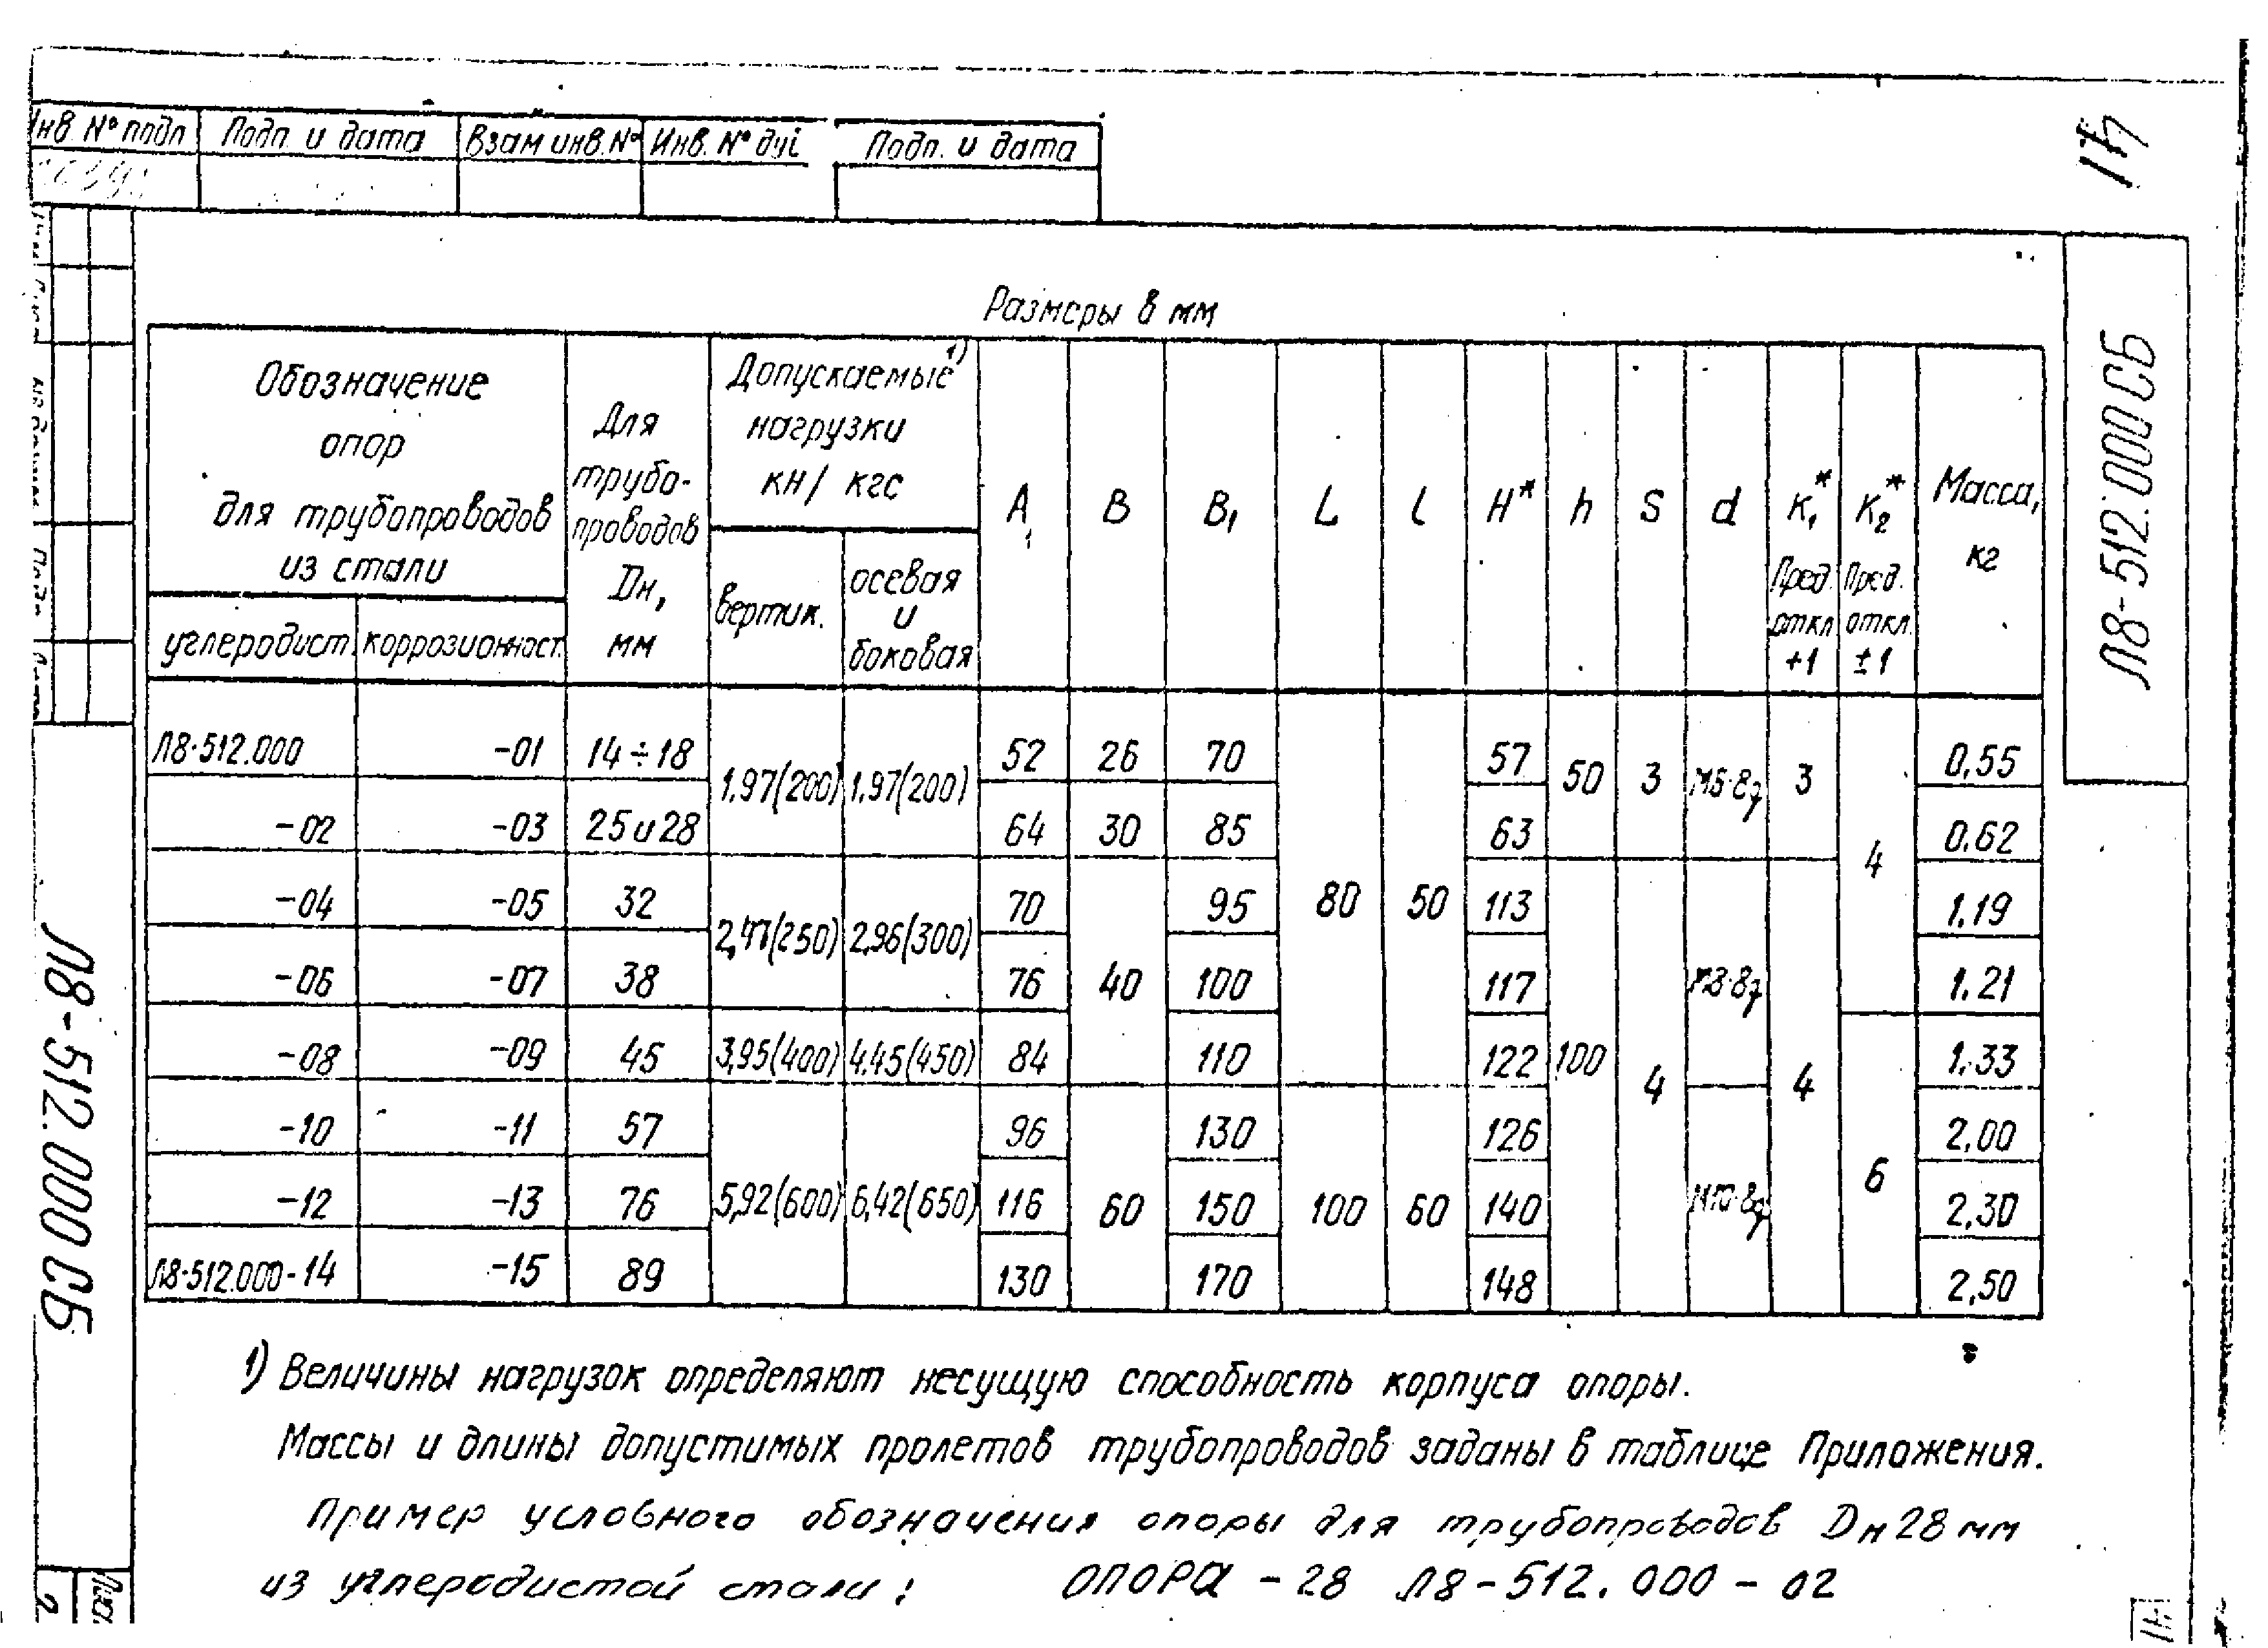 Инв. № подл Подп. и дата Взам инв. № Инв. № Подп. и дата
Размеры в мм
Л8-512.000 СБ
Обозначение опор для трубопроводов из стали
углеродист. коррозионност.
Для трубо-проводов Dн, мм
Допускаемые 1) нагрузки кн/ кгс
вертик. осевая и боковая
A B B1 L l H* h S d
K1* Пред. откл +1
K2* Пред. откл. ±1
Масса, кг
Л8-512.000 -01 14÷18 1,97(200) 1,97(200) 52 26 70 80 50 57 50 3 М6-8g 3 4 0,55
-02 -03 25 и 28 64 30 85 63 0.62
-04 -05 32 2,47(250) 2,96(300) 70 40 95 113 100 4 М8-8g 4 1,19
-06 -07 38 76 100 117 1.21
-08 -09 45 3,95(400) 4.45(450) 84 110 122 6 1,33
-10 -11 57 5,92(600) 6,42(650) 96 60 130 100 60 126 М10-8g 2,00
-12 -13 76 116 150 140 2,30
Л8-512.000-14 -15 89 130 170 148 2,50
1) Величины нагрузок определяют несущую способность корпуса опоры.
Массы и длины допустимых пролетов трубопроводов заданы в таблице Приложения.
Пример условного обозначения опоры для трубопроводов Dн 28 мм
из углеродистой стали: ОПОРА - 28 Л8-512.000-02
Л8-512.000 СБ